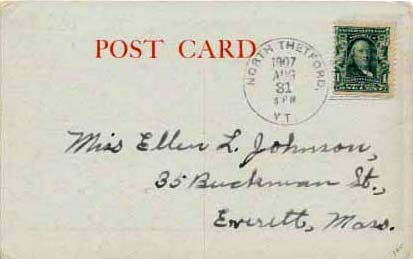 POST CARD
NORTH THETFORD,
1907
AUG
31
VT.
ONE CENT
Miss Ellen L. Johnson,
35 Buckman St.,
Everett, Mass.